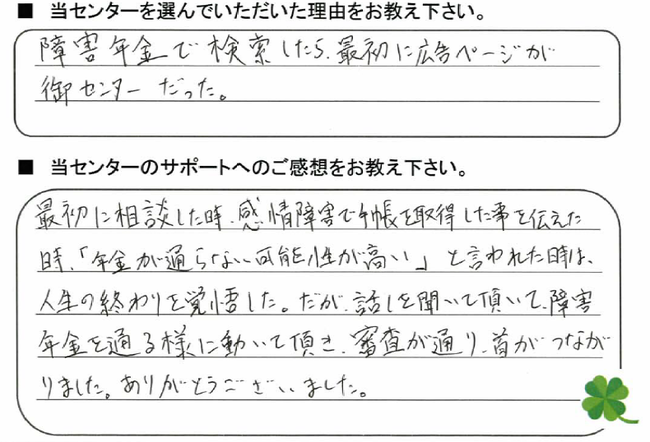 ■ 当センターを選んでいただいた理由をお教え下さい。
障害年金で検索したら、最初に広告ページが
御センターだった。
■ 当センターのサポートへのご感想をお教え下さい。
最初に相談した時、感情障害で手帳を取得した事を伝えた
時、「年金が通らない可能性が高い」と言われた時は、
人生の終わりを覚悟した。だが、話しを聞いて頂いて、障害
年金を通る様に動いて頂き、審査が通り、首がつなが
りました。ありがとうございました。